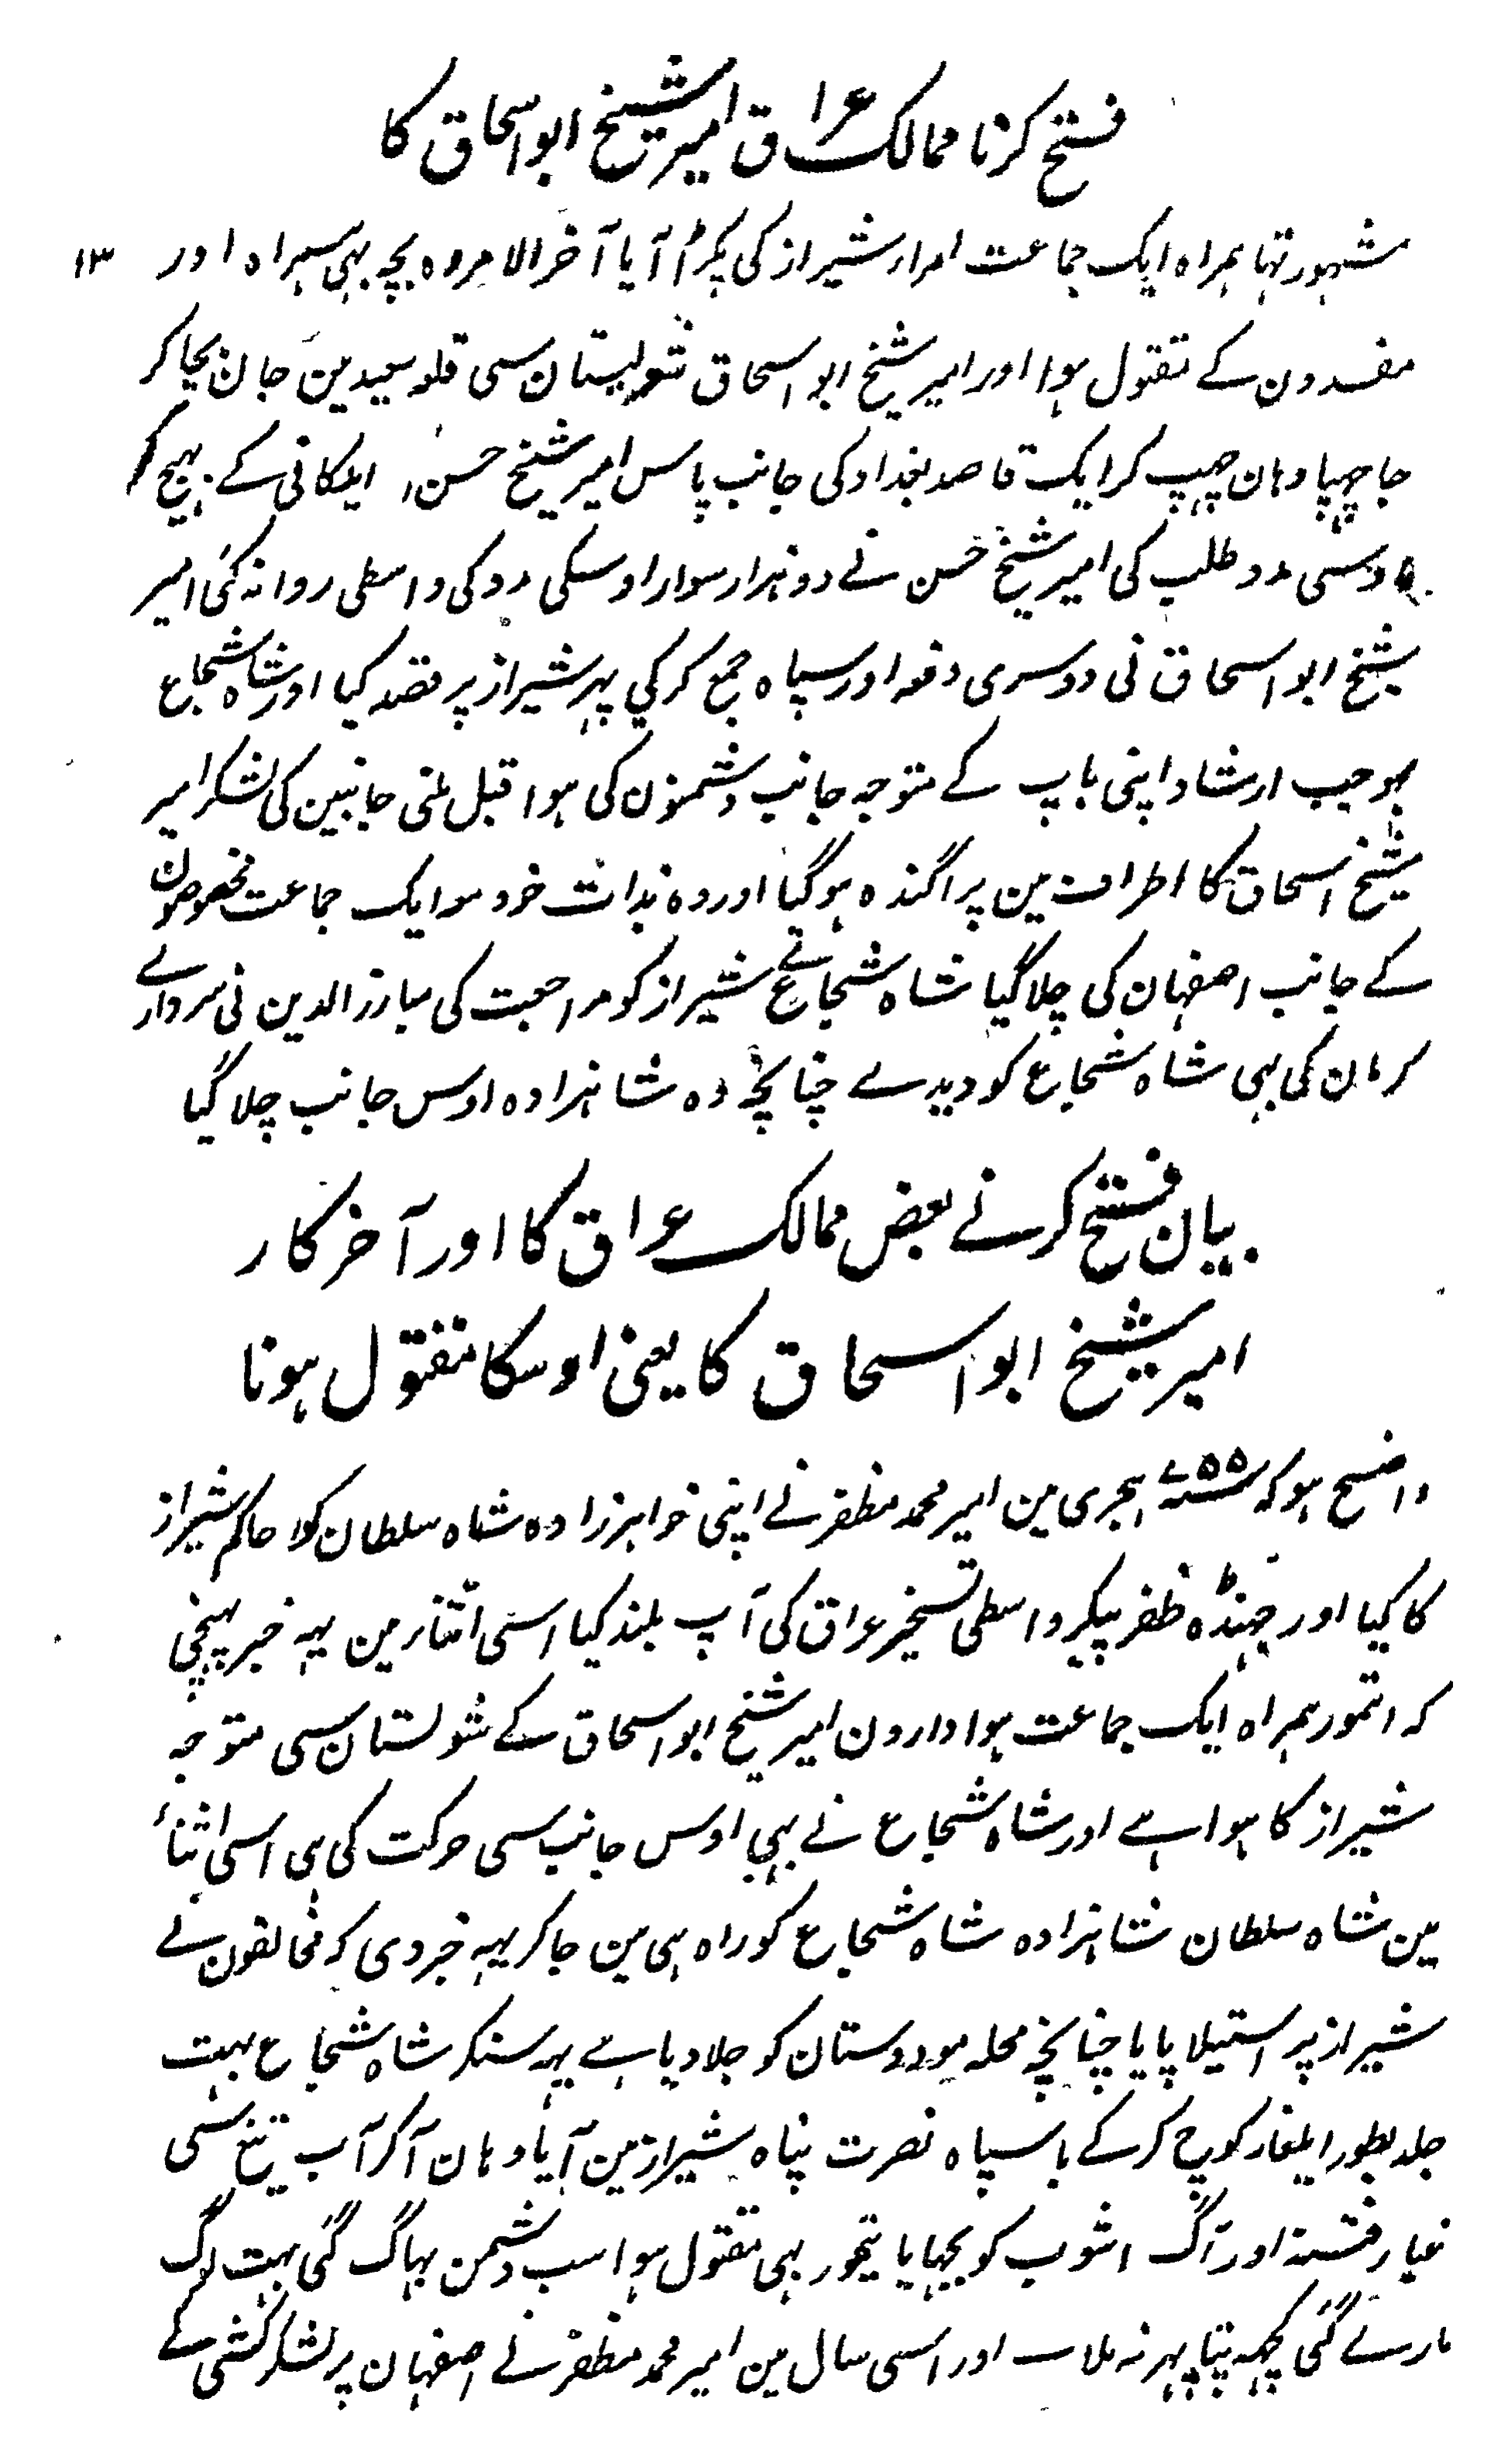 فتح کرنا ممالک عراق امیر شیخ ابو اسحاق کا
۱۳
مشہور تہا ہمراہ ایک جماعت امراء شیراز کی پکڑا آیا آخر الامر وہ بچہ بہی ہمراہ اور
مفسدون کے مقتول ہوا اور امیر شیخ ابو اسحاق شولستان سی قلعہ سعید مین جان بچا کر
جا چہپا وہان چہپ کر ایک قاصد بغداد کی جانب پاس امیر شیخ حسن ایلکانی کے بہیج کر
اوسسی مدد طلب کی امیر شیخ حسن نے دو ہزار سوار اوسکی مدد کی واسطی روانہ کئی امیر
شیخ ابو اسحاق نی دوسری دفعہ اور سپاہ جمع کر کی پہر شیراز پر قصد کیا اور شاہ شجاع
بموجب ارشاد اپنی باپ کے متوجہ جانب دشمنون کی ہوا قبل ملنی جانبین کی لشکر امیر
شیخ اسحاق کا اطراف مین پراگندہ ہو گیا اور وہ بذات خود مع ایک جماعت مخصوصون
کے جانب اصفہان کی چلا گیا شاہ شجاع نے شیراز کو مراجعت کی مبارز الدین نی سردارے
کرمان کی بہی شاہ شجاع کو دیدے چنانچہ وہ شاہزادہ اوس جانب چلا گیا
بیان فتح کرنے بعض ممالک عراق کا اور آخر کار
امیر شیخ ابو اسحاق کا یعنی اوسکا مقتول ہونا
واضح ہو کہ سنہ ۷۵۵ ہجری مین امیر محمد مظفر نے اپنی خواہرزادہ شاہ سلطان کو حاکم شیراز
کا کیا اور جہنڈہ ظفر پیکر واسطی تسخیر عراق کی آپ بلند کیا اسی اثناء مین یہہ خبر پہنچی
کہ اتمور ہمراہ ایک جماعت ہوادارون امیر شیخ ابو اسحاق کے شولستان سی متوجہ
شیراز کا ہوا ہے اور شاہ شجاع نے بہی اوس جانب سی حرکت کی ہی اسی اثناء
مین شاہ سلطان شاہزادہ شاہ شجاع کو راہ ہی مین جا کر یہہ خبر دی کہ مخالفون نے
شیراز پر استیلا پایا چنانچہ محلہ موردستان کو جلا دیا ہے یہہ سنکر شاہ شجاع بہت
جلد بطور ایلغار کوچ کر کے با سپاہ نصرت پناہ شیراز مین آیا وہان آ کر آب تیغ سی
غبار فتنہ اور آگ اشوب کو بجہایا تیمور بہی مقتول ہوا سب دشمن بہاگ گئی بہت لوگ
مارے گئی کچہہ پتا پہر نہ ملا اور اسی سال مین امیر محمد مظفر نے اصفہان پر لشکر کشی کے